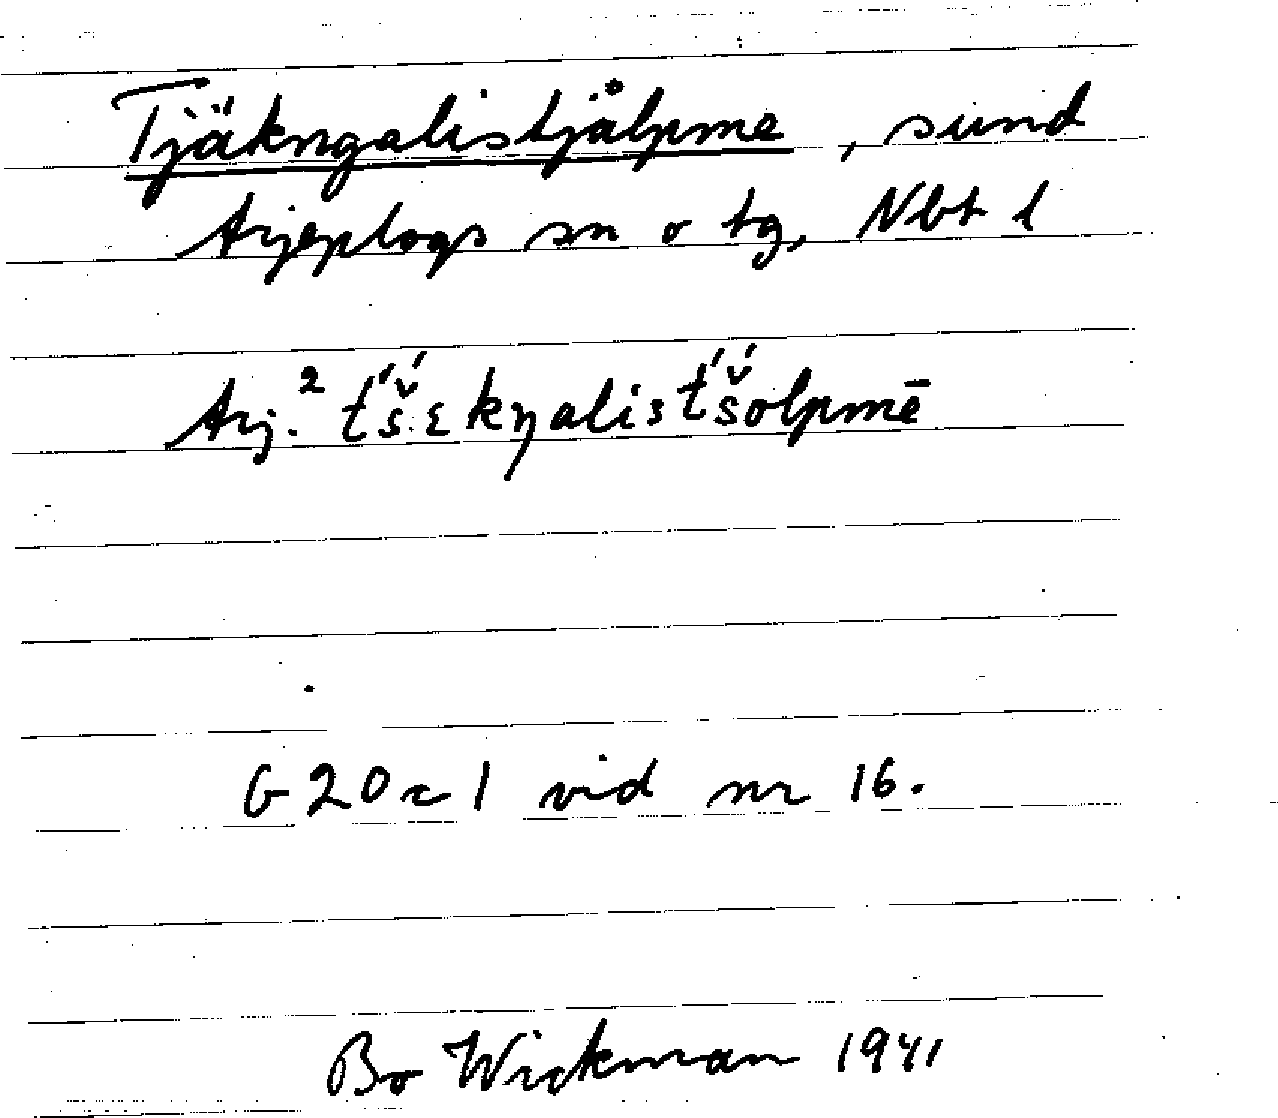 Tjäkngalistjålpme, sund
Arjeplogs sn o tg, Nbt l
Arj.² t́š́ɛkŋalist́š́olpmē
G 20 c 1 vid nr 16.
Bo Wickman 1941